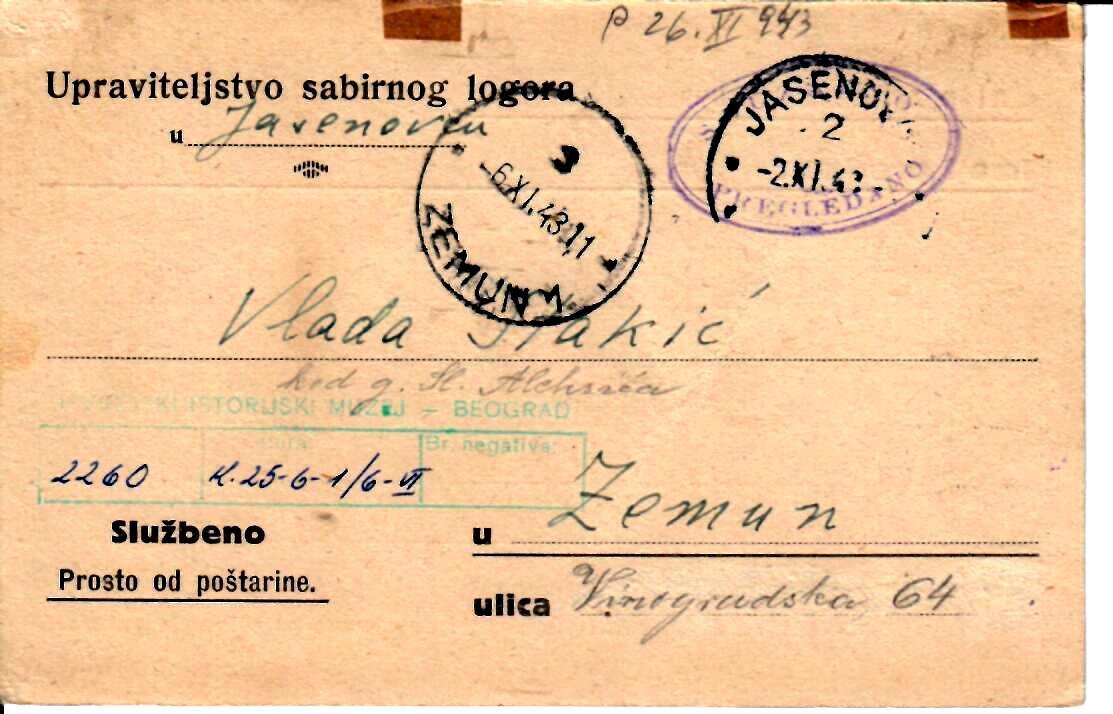 P 26. XI 943
Upraviteljstvo sabirnog logora
u Jasenovcu
JASENOVAC
2
-2.XI.43
PREGLEDANO
3
-6.XI.43 11
ZEMUN
Vlada
kod g. Sl.
ISTORIJSKI MUZEJ – BEOGRAD
Br. negativa:
2260 K.25-6-1/6-VI
Službeno
Prosto od poštarine.
u Zemun
ulica Vinogradska 64